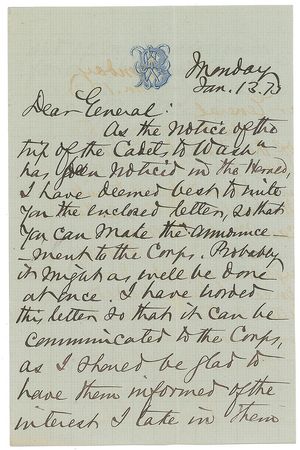 Monday
Jan. 13. 73
Dear General:
As the notice of the
trip of the Cadets to Washn
has been noticed in the Herald,
I have deemed best to write
you the enclosed letter, so that
you can make the announce
-ment to the Corps. Probably
it might as well be done
at once. I have worded
this letter so that it can be
communicated to the Corps,
as I should be glad to
have them informed of the
interest I take in them